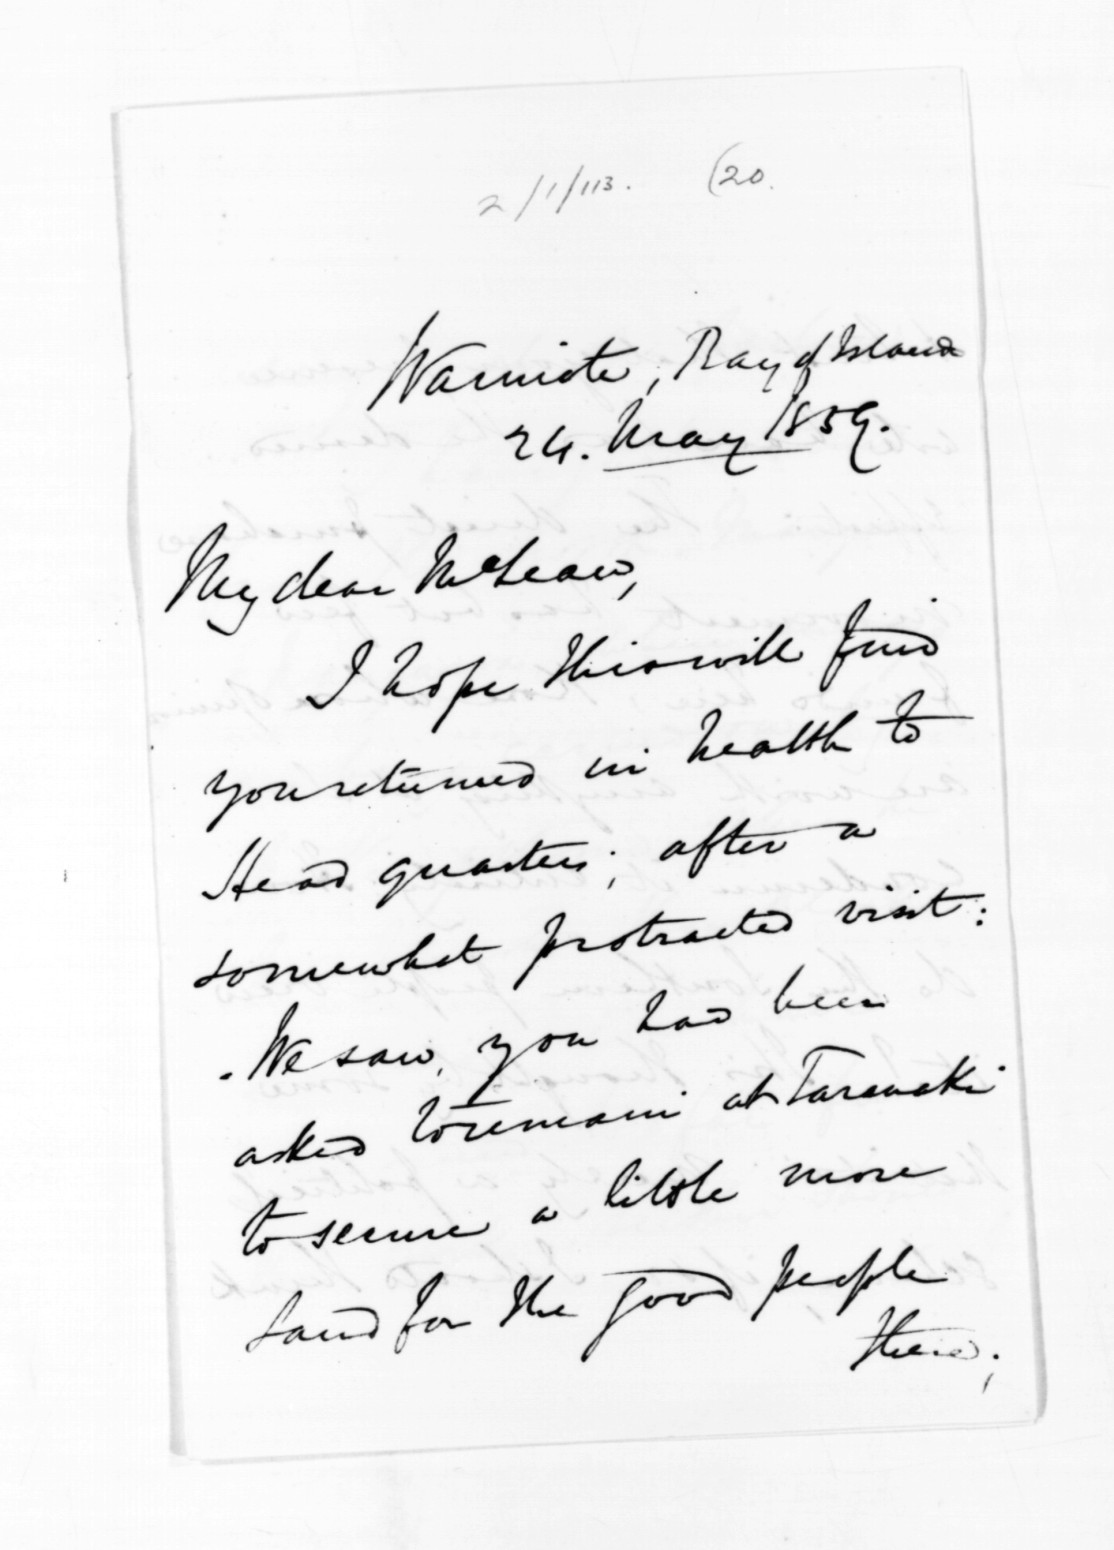 2/1/113. (20.
Waimate, Bay of Islands
24. May 1859.
My dear McLean,
I hope this will find
you returned in health to
Head quarters; after a
somewhat protracted visit:
. We saw, you had been
asked to remain at Taranaki
to secure a little more
land for the good people
there;